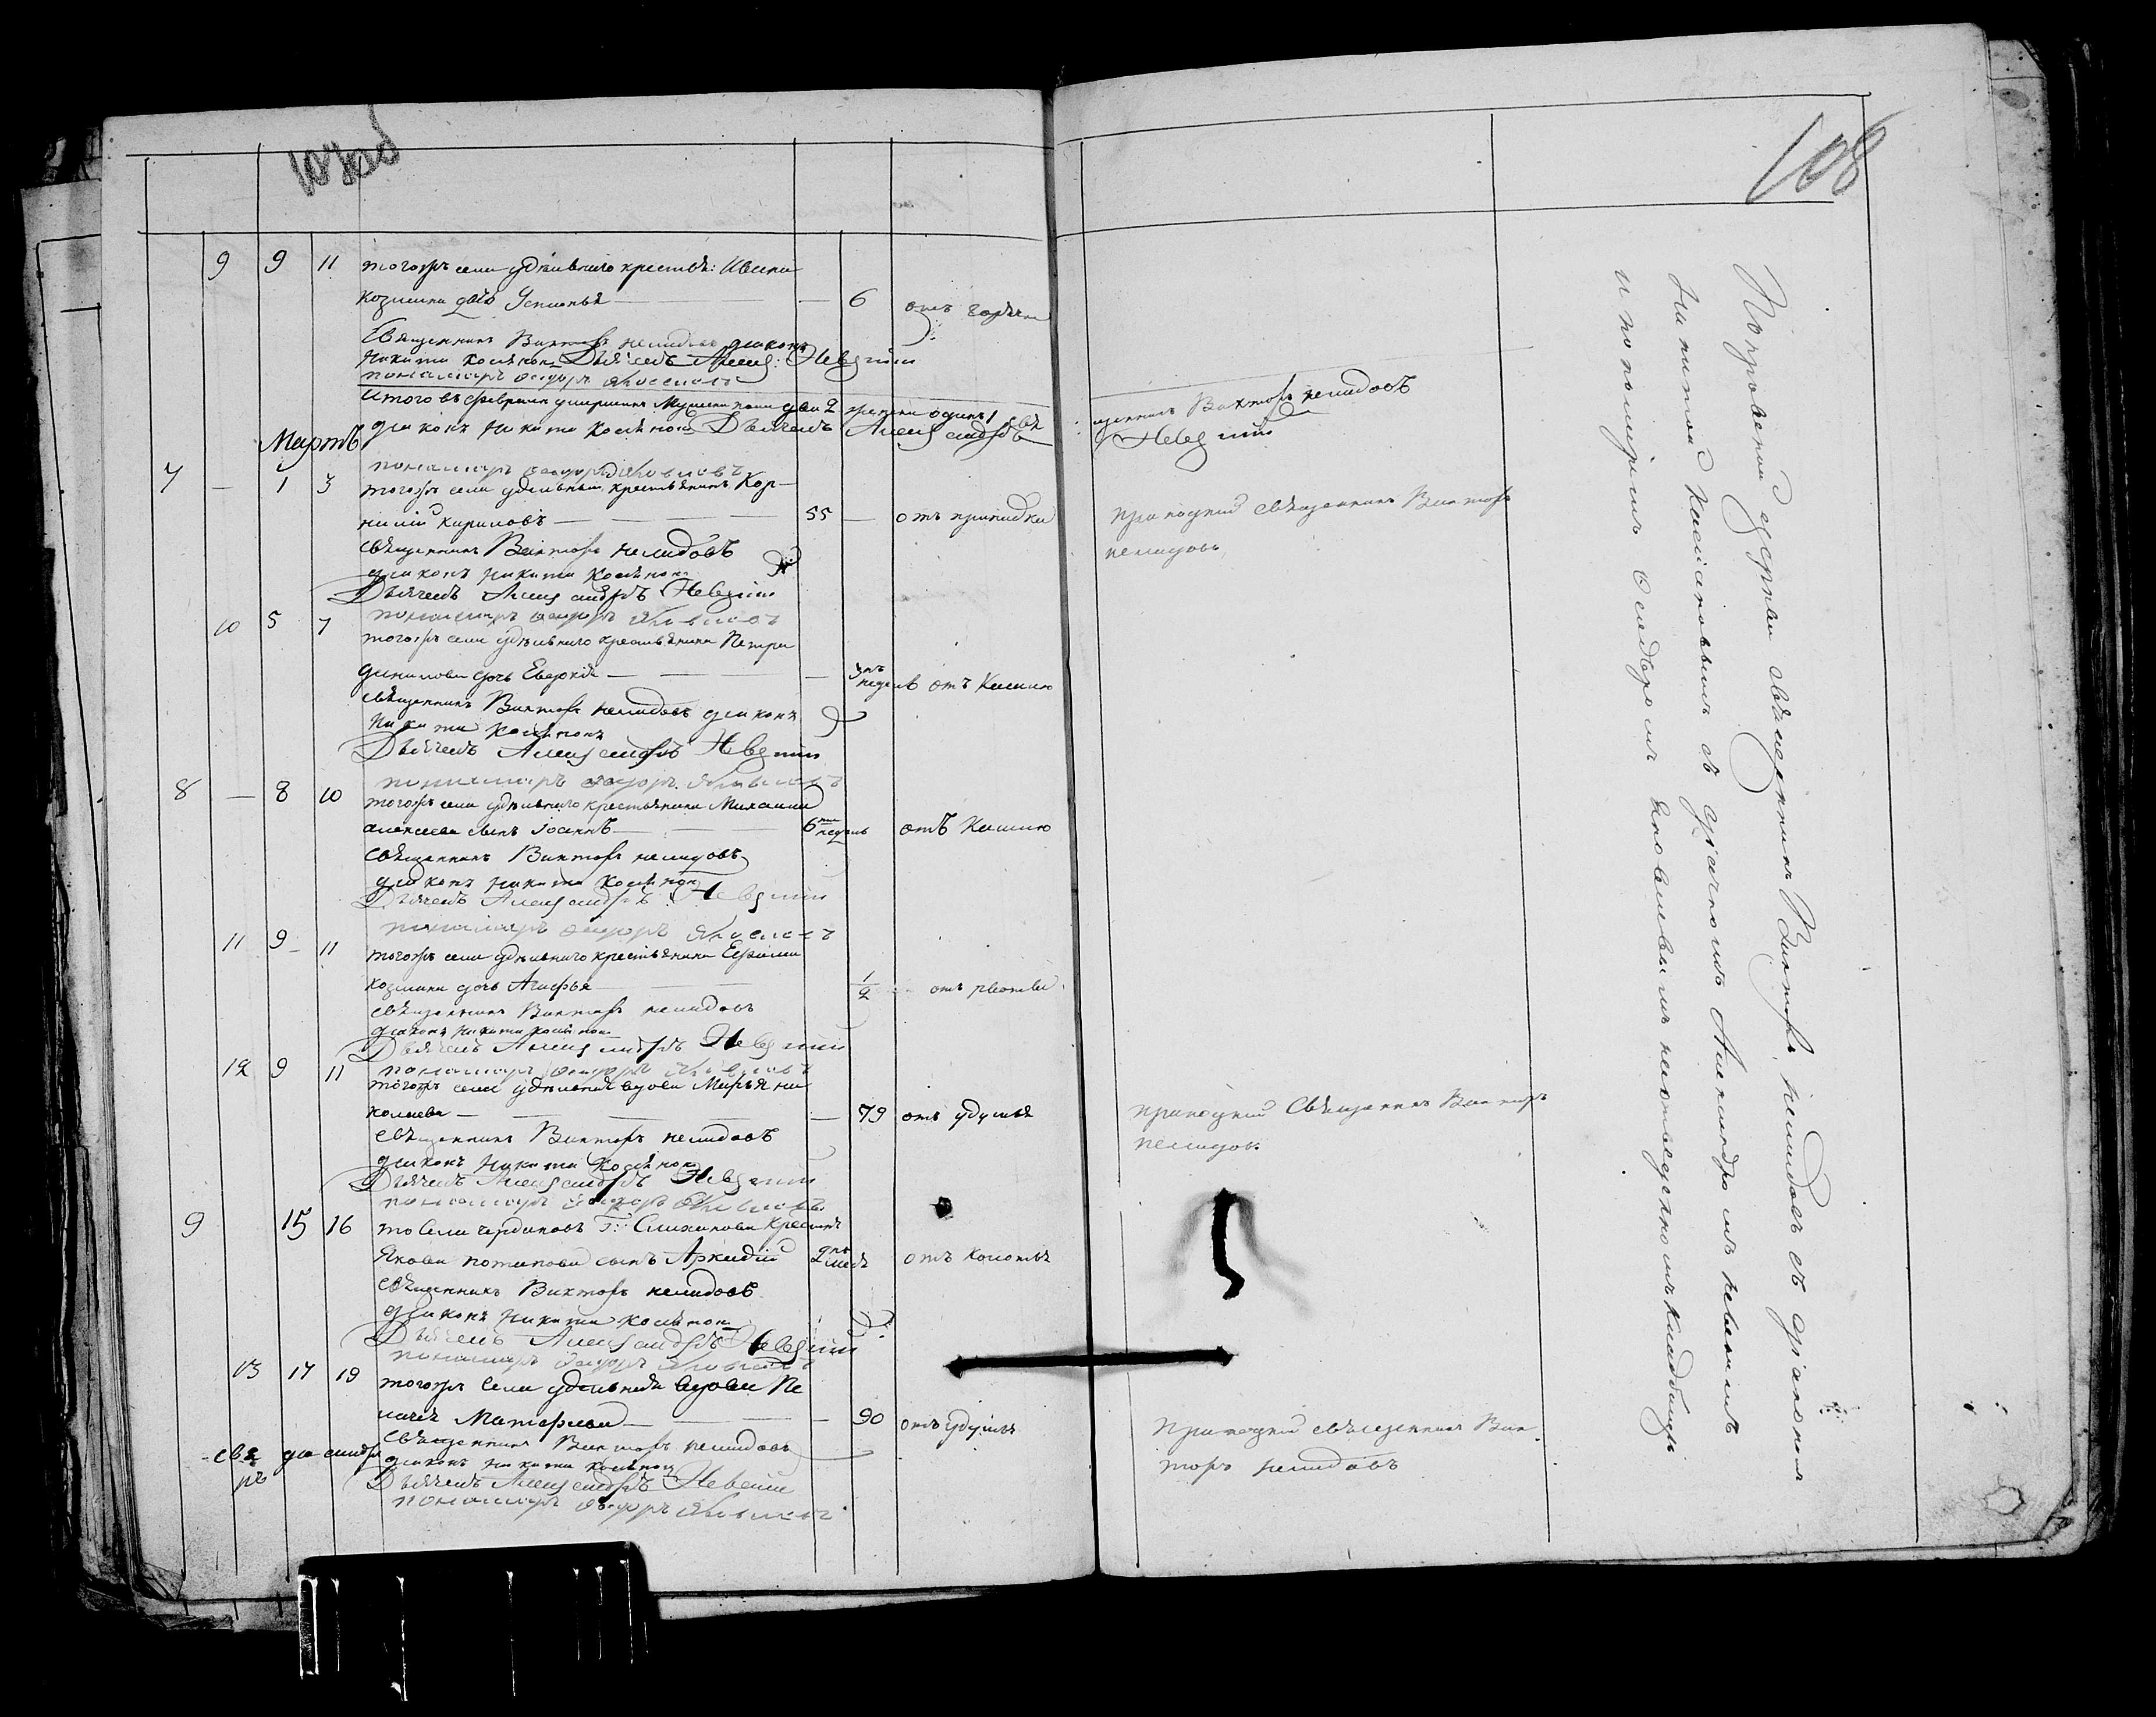 107об
108
9 9 11 тогожъ села удѣльнаго крестья: Ивана
Козмина дочь Устинья — — 6 отъ горячки
Священникъ Викторъ Нелидовъ диаконъ
Никита Касьяновъ Дьячекъ Алекса: Невскiй
пономарь Ѳедоръ Яковлевъ
Итого въ февралѣ умершихъ Мужеска пола два 2 женска одинъ 1 свя щенникъ Викторъ Нелидовъ
диаконъ Никита Касьяновъ Дьячекъ Александръ Невскiй
Мартъ
пономарь Ѳедоръ Яковлевъ
7 — 1 3 тогожъ села удѣльный крестьянинъ Кор-
нилiй Кириловъ — — — 55 — отъ припадка приходскiй священникъ Викторъ
Нелидовъ
священникъ Викторъ Нелидовъ
диаконъ Никита Касьяновъ
Дьячекъ Александръ Невскiй
пономарь Ѳедоръ Яковлевъ
10 5 7 тогожъ села удѣльнаго крестьянина Петра
Данилова дочь Евдокiя — — — недель отъ Кашлю
священникъ Викторъ Нелидовъ диаконъ
Никита Касьяновъ
Дьячекъ Александръ Невскiй
пономарь Ѳедоръ Яковлевъ
8 — 8 10 тогожъ села удѣльнаго крестьянина Михаила
Алексеева сынъ Iоаннъ — — 6 недель отъ Кашлю
священникъ Викторъ Нелидовъ
диаконъ Никита Касьяновъ
Дьячекъ Александръ Невскiй
пономарь Ѳедоръ Яковлевъ
11 9 — 11 тогожъ села удѣльнаго крестьянина Ефима
Козмина дочь Агафья — — 1/2 отъ рвоты
священникъ Викторъ Нелидовъ
диаконъ Никита Касьяновъ
Дьячекъ Александръ Невскiй
пономарь Ѳедоръ Яковлевъ
12 9 11 тогожъ села удѣльная вдова Марья Ни
колаева — — — — 79 отъ удушья приходскiй Священникъ Викторъ
Нелидовъ
священникъ Викторъ Нелидовъ
диаконъ Никита Касьяновъ
Дьячекъ Александръ Невскiй
пономарь Ѳедоръ Яковлевъ
9 15 16 то Села Г: крестьян
Якова Потапова сынъ Аркадiй 2 отъ Колотья
священникъ Викторъ Нелидовъ
диаконъ Никита Касьяновъ
Дьячекъ Александръ Невскiй
пономарь Ѳедоръ Яковлевъ
13 17 19 тогожъ Села удѣльная вдова Пе
лагея Матфеева — — — 90 отъ удушья Приходскiй священникъ Вик-
торъ Нелидовъ
священникъ Викторъ Нелидовъ
диаконъ Никита Касьяновъ
Дьячекъ Александръ Невскiй
пономарь Ѳедоръ Яковлевъ
Погребенiй держал священникъ Викторъ Нелидовъ съ дiакономъ
Никитой Касьяновымъ съ дьячкомъ Александромъ Невскимъ
и пономаремъ Ѳедоромъ Яковлевымъ на отведенномъ кладбищѣ